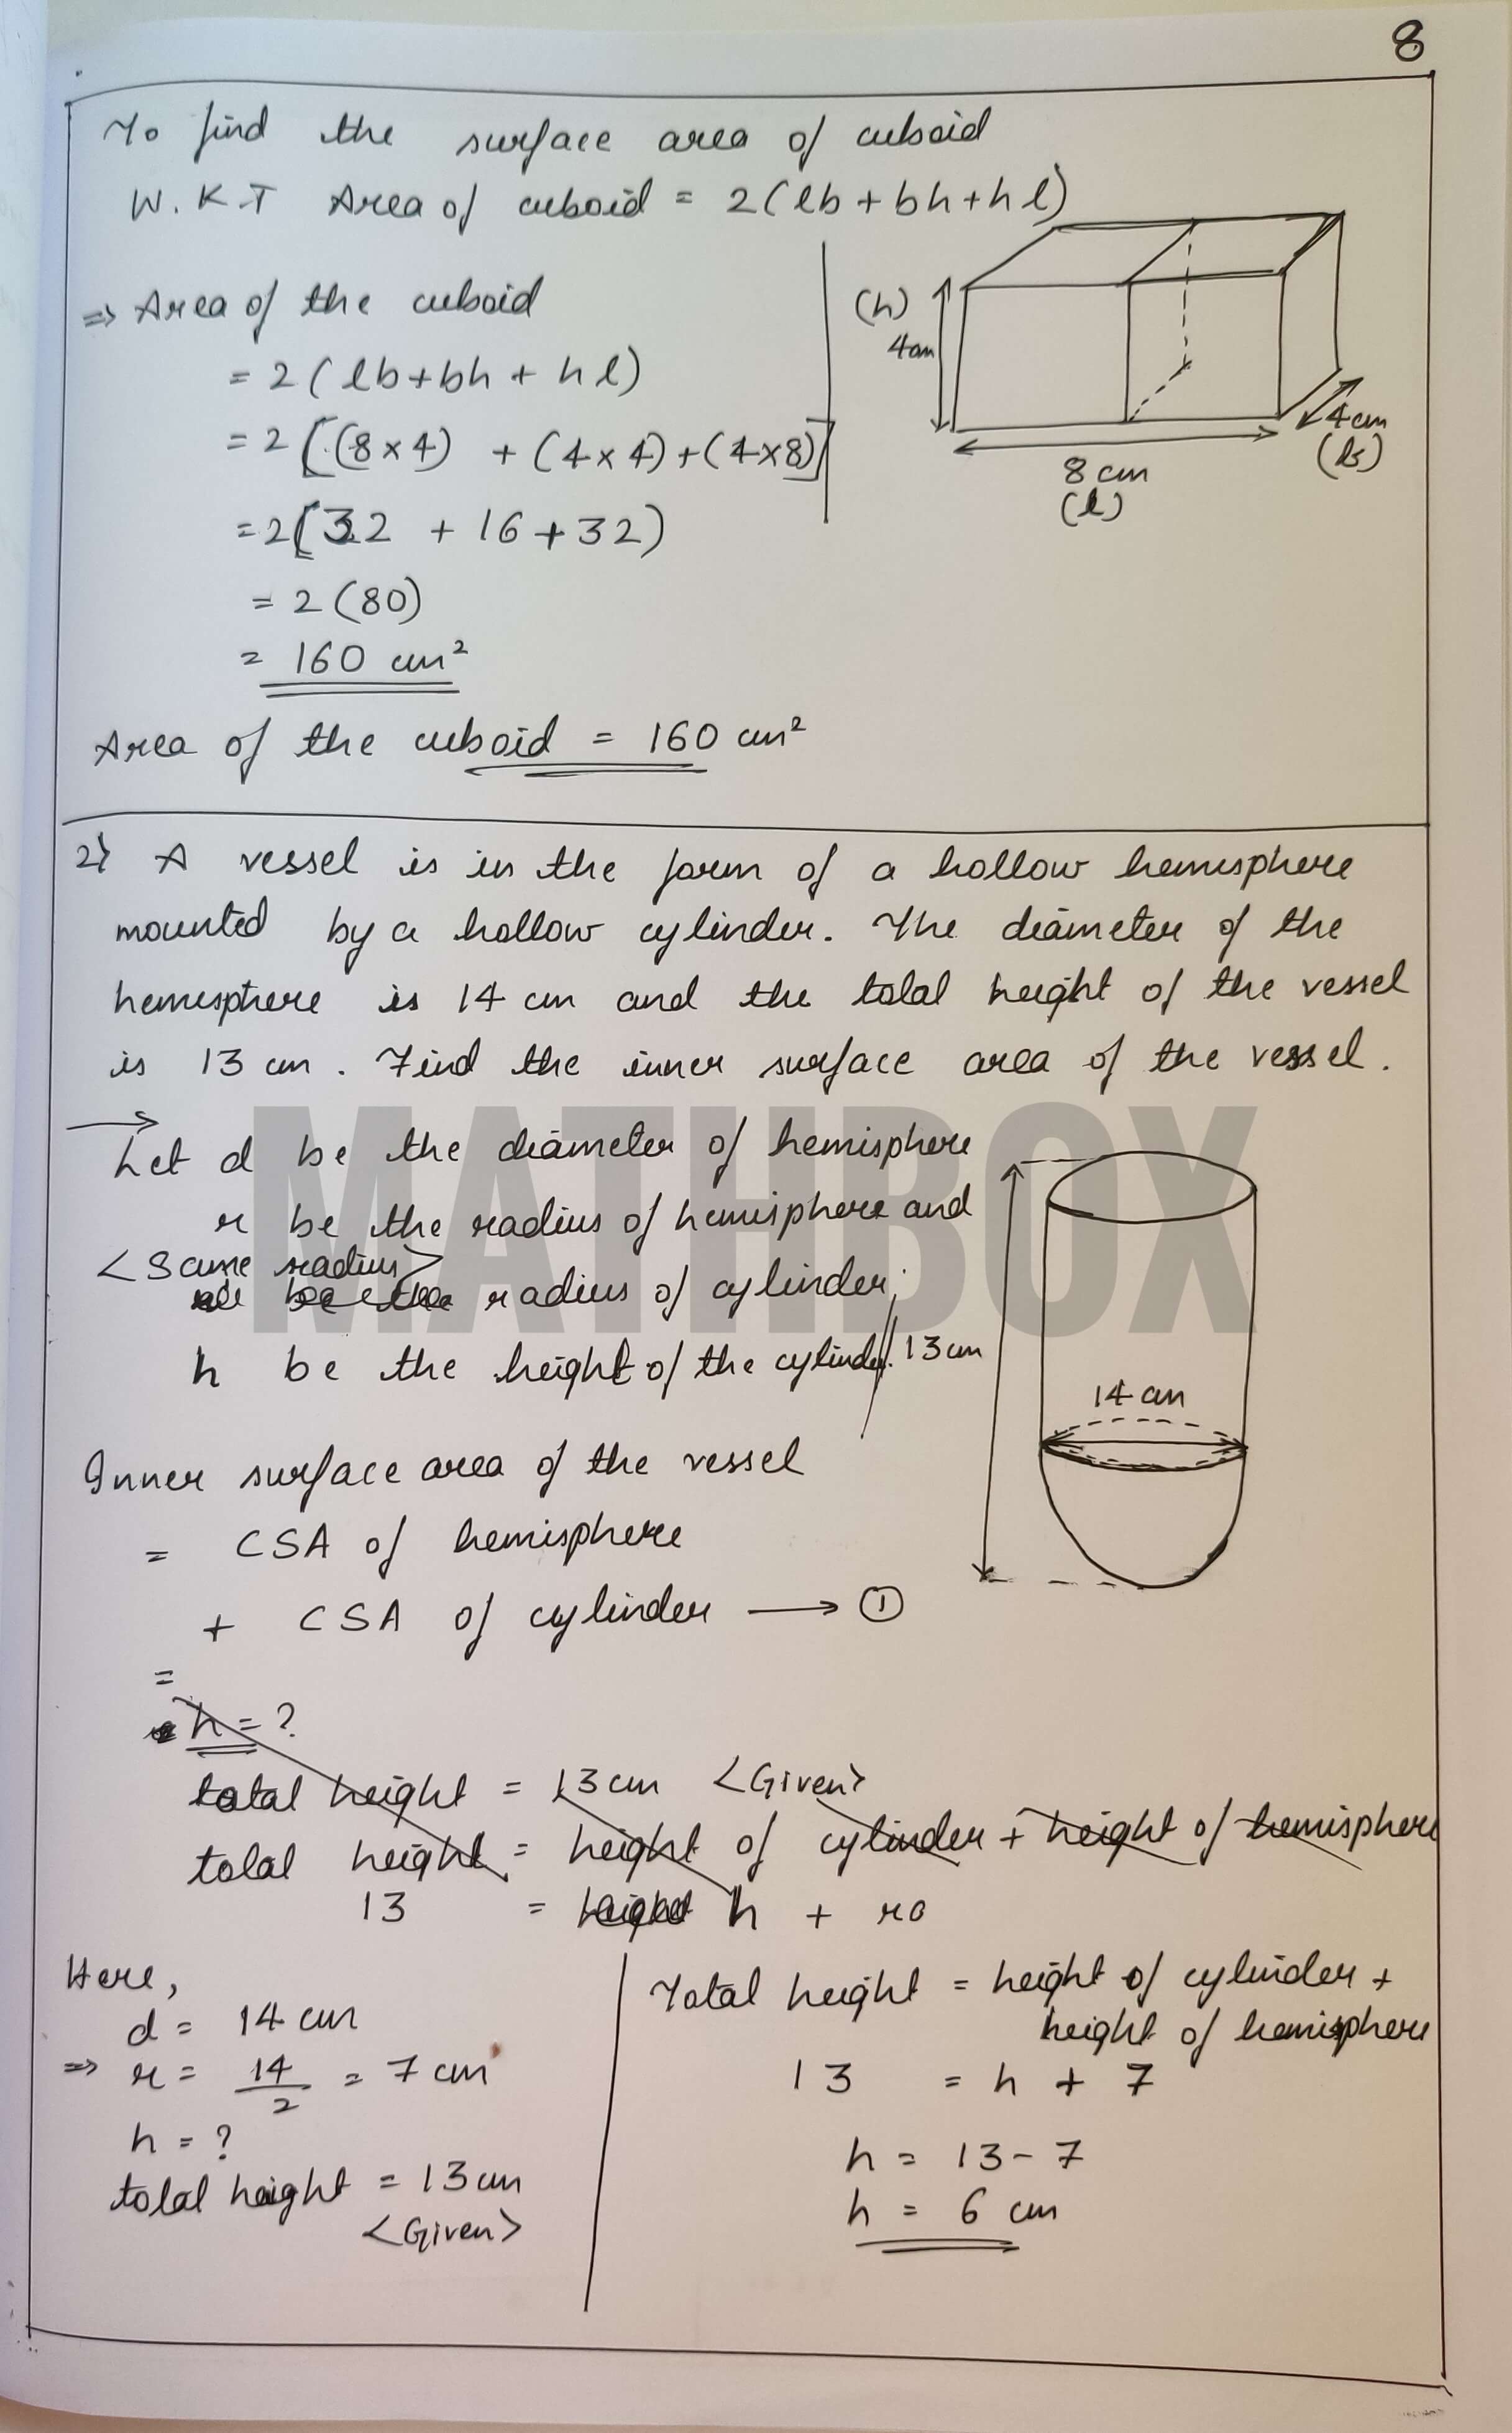 8
To find the surface area of cuboid
W.K.T Area of cuboid = 2(lb+bh+hl)
⇒ Area of the cuboid
= 2(lb+bh+hl)
= 2[(8×4) + (4×4)+(4×8)]
= 2[32 + 16+32)
= 2(80)
= 160 cm²
(h)
4cm
8 cm
(l)
4cm
(b)
Area of the cuboid = 160 cm²
2) A vessel is in the form of a hollow hemisphere
mounted by a hollow cylinder. The diameter of the
hemisphere is 14 cm and the total height of the vessel
is 13 cm. Find the inner surface area of the vessel.
→
Let d be the diameter of hemisphere
r be the radius of hemisphere and
<Same radius>
be the radius of cylinder;
h be the height of the cylinder.
13 cm
14 cm
Inner surface area of the vessel
= CSA of hemisphere
+ CSA of cylinder → ①
=
h = ?
total height = 13 cm <Given>
total height = height of cylinder + height of hemisphere
13 = height h + r
Here,
d = 14 cm
⇒ r = 14/2 = 7 cm
h = ?
total height = 13 cm
<Given>
Total height = height of cylinder +
height of hemisphere
13 = h + 7
h = 13 - 7
h = 6 cm
MATHBOX